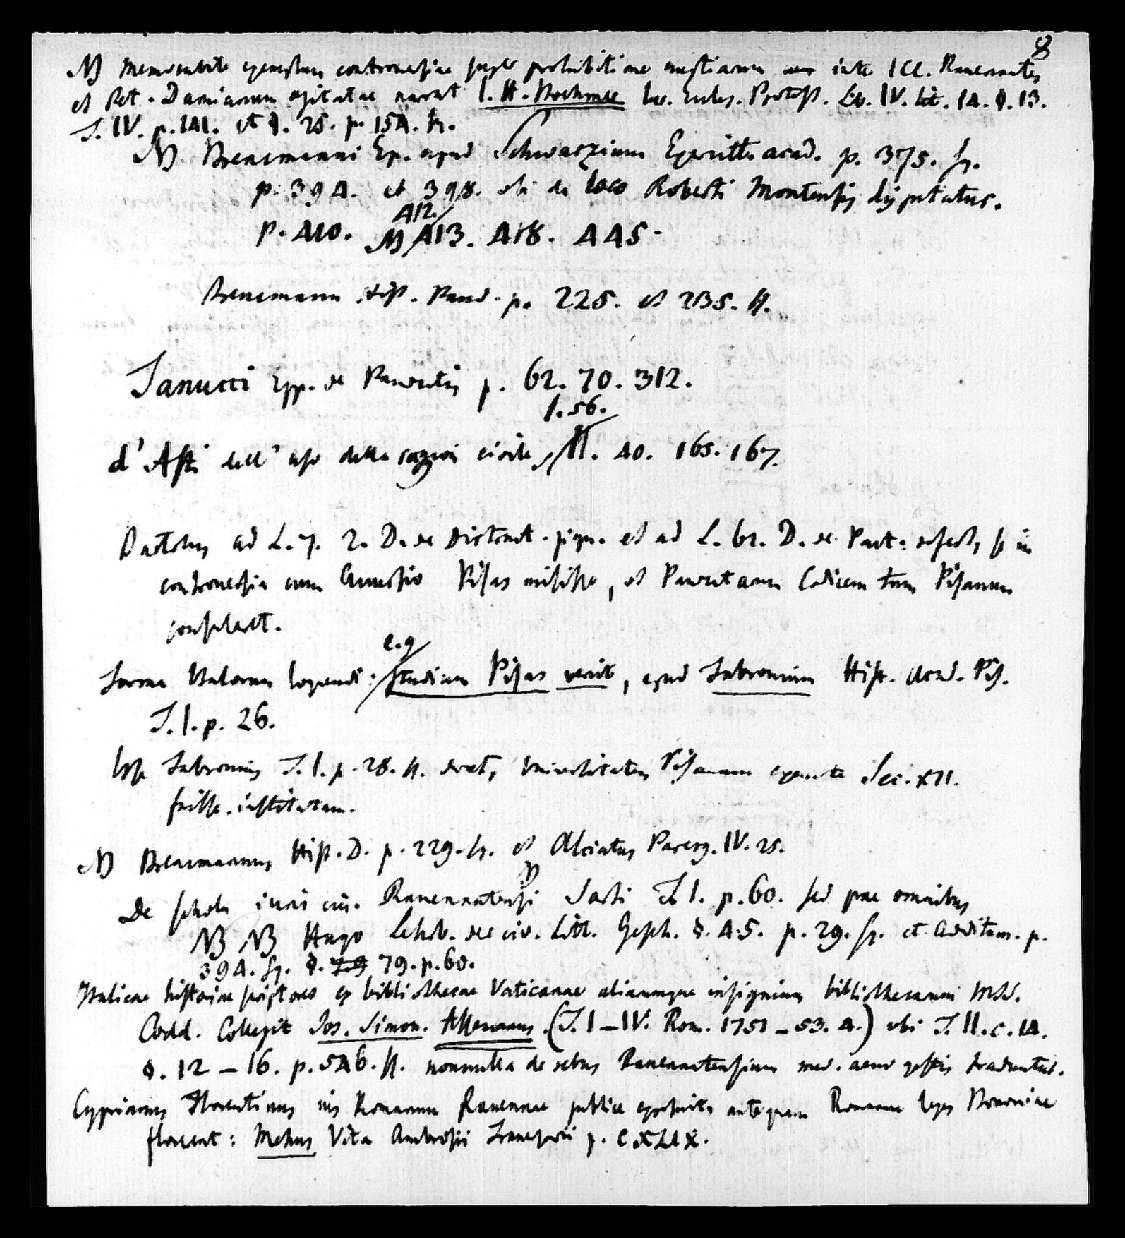 8
NB memorabile exemplum controversiae super prohibitione nuptiarum inter ICC. Ravennates
et Pet. Damianum agitatae narrat I. H. Boehmer Ius. Eccles. Protest. Lib. IV. tit. 14. §. 13.
T. IV. p. 141. et §. 25. p. 154. sq.
NB Brencmanni Ep. apud Schwarzium Exercitt. acad. p. 375. sq.
p. 394. et 398. ubi de loco Roberti Montensis disputatur.
412
p. 410. NB 413. 418. 445.
Brencmann Hist. Pand. p. 225. et 235. ff.
Tanucci Epp. de Pandectis p. 62. 70. 312.
I. 56.
d'Asti dell' uso della ragion civile, II. 40. 165. 167.
Bartolus ad L. 7. 2. D. de Distract. pign. et ad L. 62. D. de Pact. refert, se in
controversia cum Pisas misisse, et Pandectarum Codicem tum Pisanum
consuleret.
e.g.
Forma Italorum loquendi: studium Pisas venit, apud Fabronium Hist. Acad. Pis.
T. I. p. 26.
Ipse Fabronius T. I. p. 28. ff. docet, Universitatem Pisanam exeunte Sec. XII.
fuisse institutam.
NB Brencmannus Hist. D. p. 229. sq. et Alciatus Parerg. IV. 25.
De schola iuris civ. Ravennatensi Sarti T. I. p. 60. sed prae omnibus
NB NB Hugo Lehrb. der civ. Litt. Gesch. §. 45. p. 29. sq. et additam. p.
394. sq. §. 79 79. p. 60.
Italicae historiae scriptores ex bibliothecae Vaticanae aliarumque insignium bibliothecarum MSS.
Codd. Collegit Jos. Simon. Assemanus. (T. I–IV. Rom. 1751–53. 4.) ubi T. II. c. 14.
§. 12 – 16. p. 546. ff. nonnulla de rebus Ravennatensium med. aevo gestis traduntur.
Cyprianus Florentinus ius Romanum Ravennae publice exposuit, antequam Romanae leges Bononiae
florerent: Mehus Vita Ambrosii p. CXLIX.